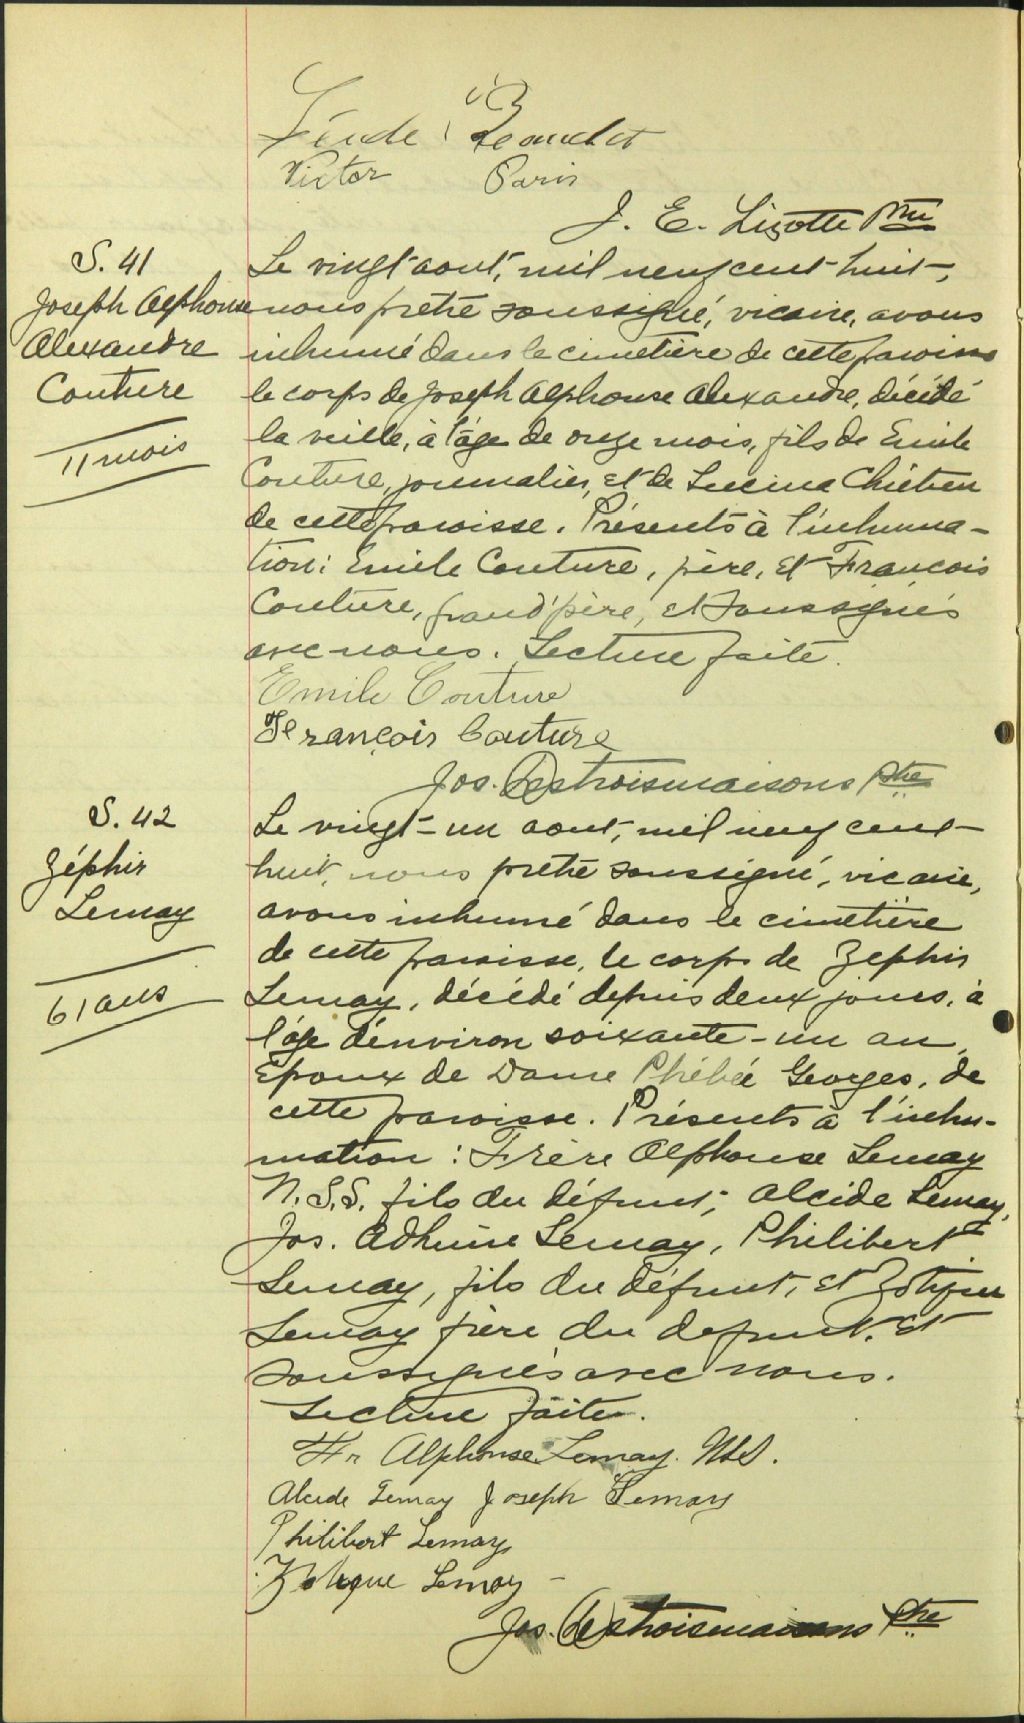 Beaudet
Victor Paris
J. E. Lizotte Ptre
S. 41
Joseph Alphonse
Alexandre
Couture
11 mois
Le vingt aout, mil neuf cent huit,
nous prêtre soussigné, vicaire, avons
inhumé dans le cimetière de cette paroisse
le corps de Joseph Alphonse Alexandre, décédé
la veille, à l'âge de onze mois, fils de Emile
Couture, journalier, et de Lucina Chrétien
de cette paroisse. Présents à l'inhuma-
tion: Emile Couture, père, et François
Couture, grand'père, et soussignés
avec nous. Lecture faite.
Emile Couture
François Couture
Jos. Destroismaisons Ptre
S. 42
Zéphir
Lemay
61 ans
Le vingt-un aout, mil neuf cent
huit, nous prêtre soussigné, vicaire,
avons inhumé dans le cimetière
de cette paroisse, le corps de Zéphir
Lemay, décédé depuis deux jours, à
l'âge d'environ soixante-un an,
Epoux de Dame Phébée Georges, de
cette paroisse. Présents à l'inhu-
mation: Frère Alphonse Lemay
fils du défunt, Alcide Lemay,
Jos. Lemay, Philibert
Lemay, fils du défunt, et Zotique
Lemay frère du defunt. Et
soussignés avec nous.
Lecture faite.
Fr Alphonse Lemay.
Alcide Lemay Joseph Lemay
Philibert Lemay
Zotique Lemay
Jos. Destroismaisons Ptre